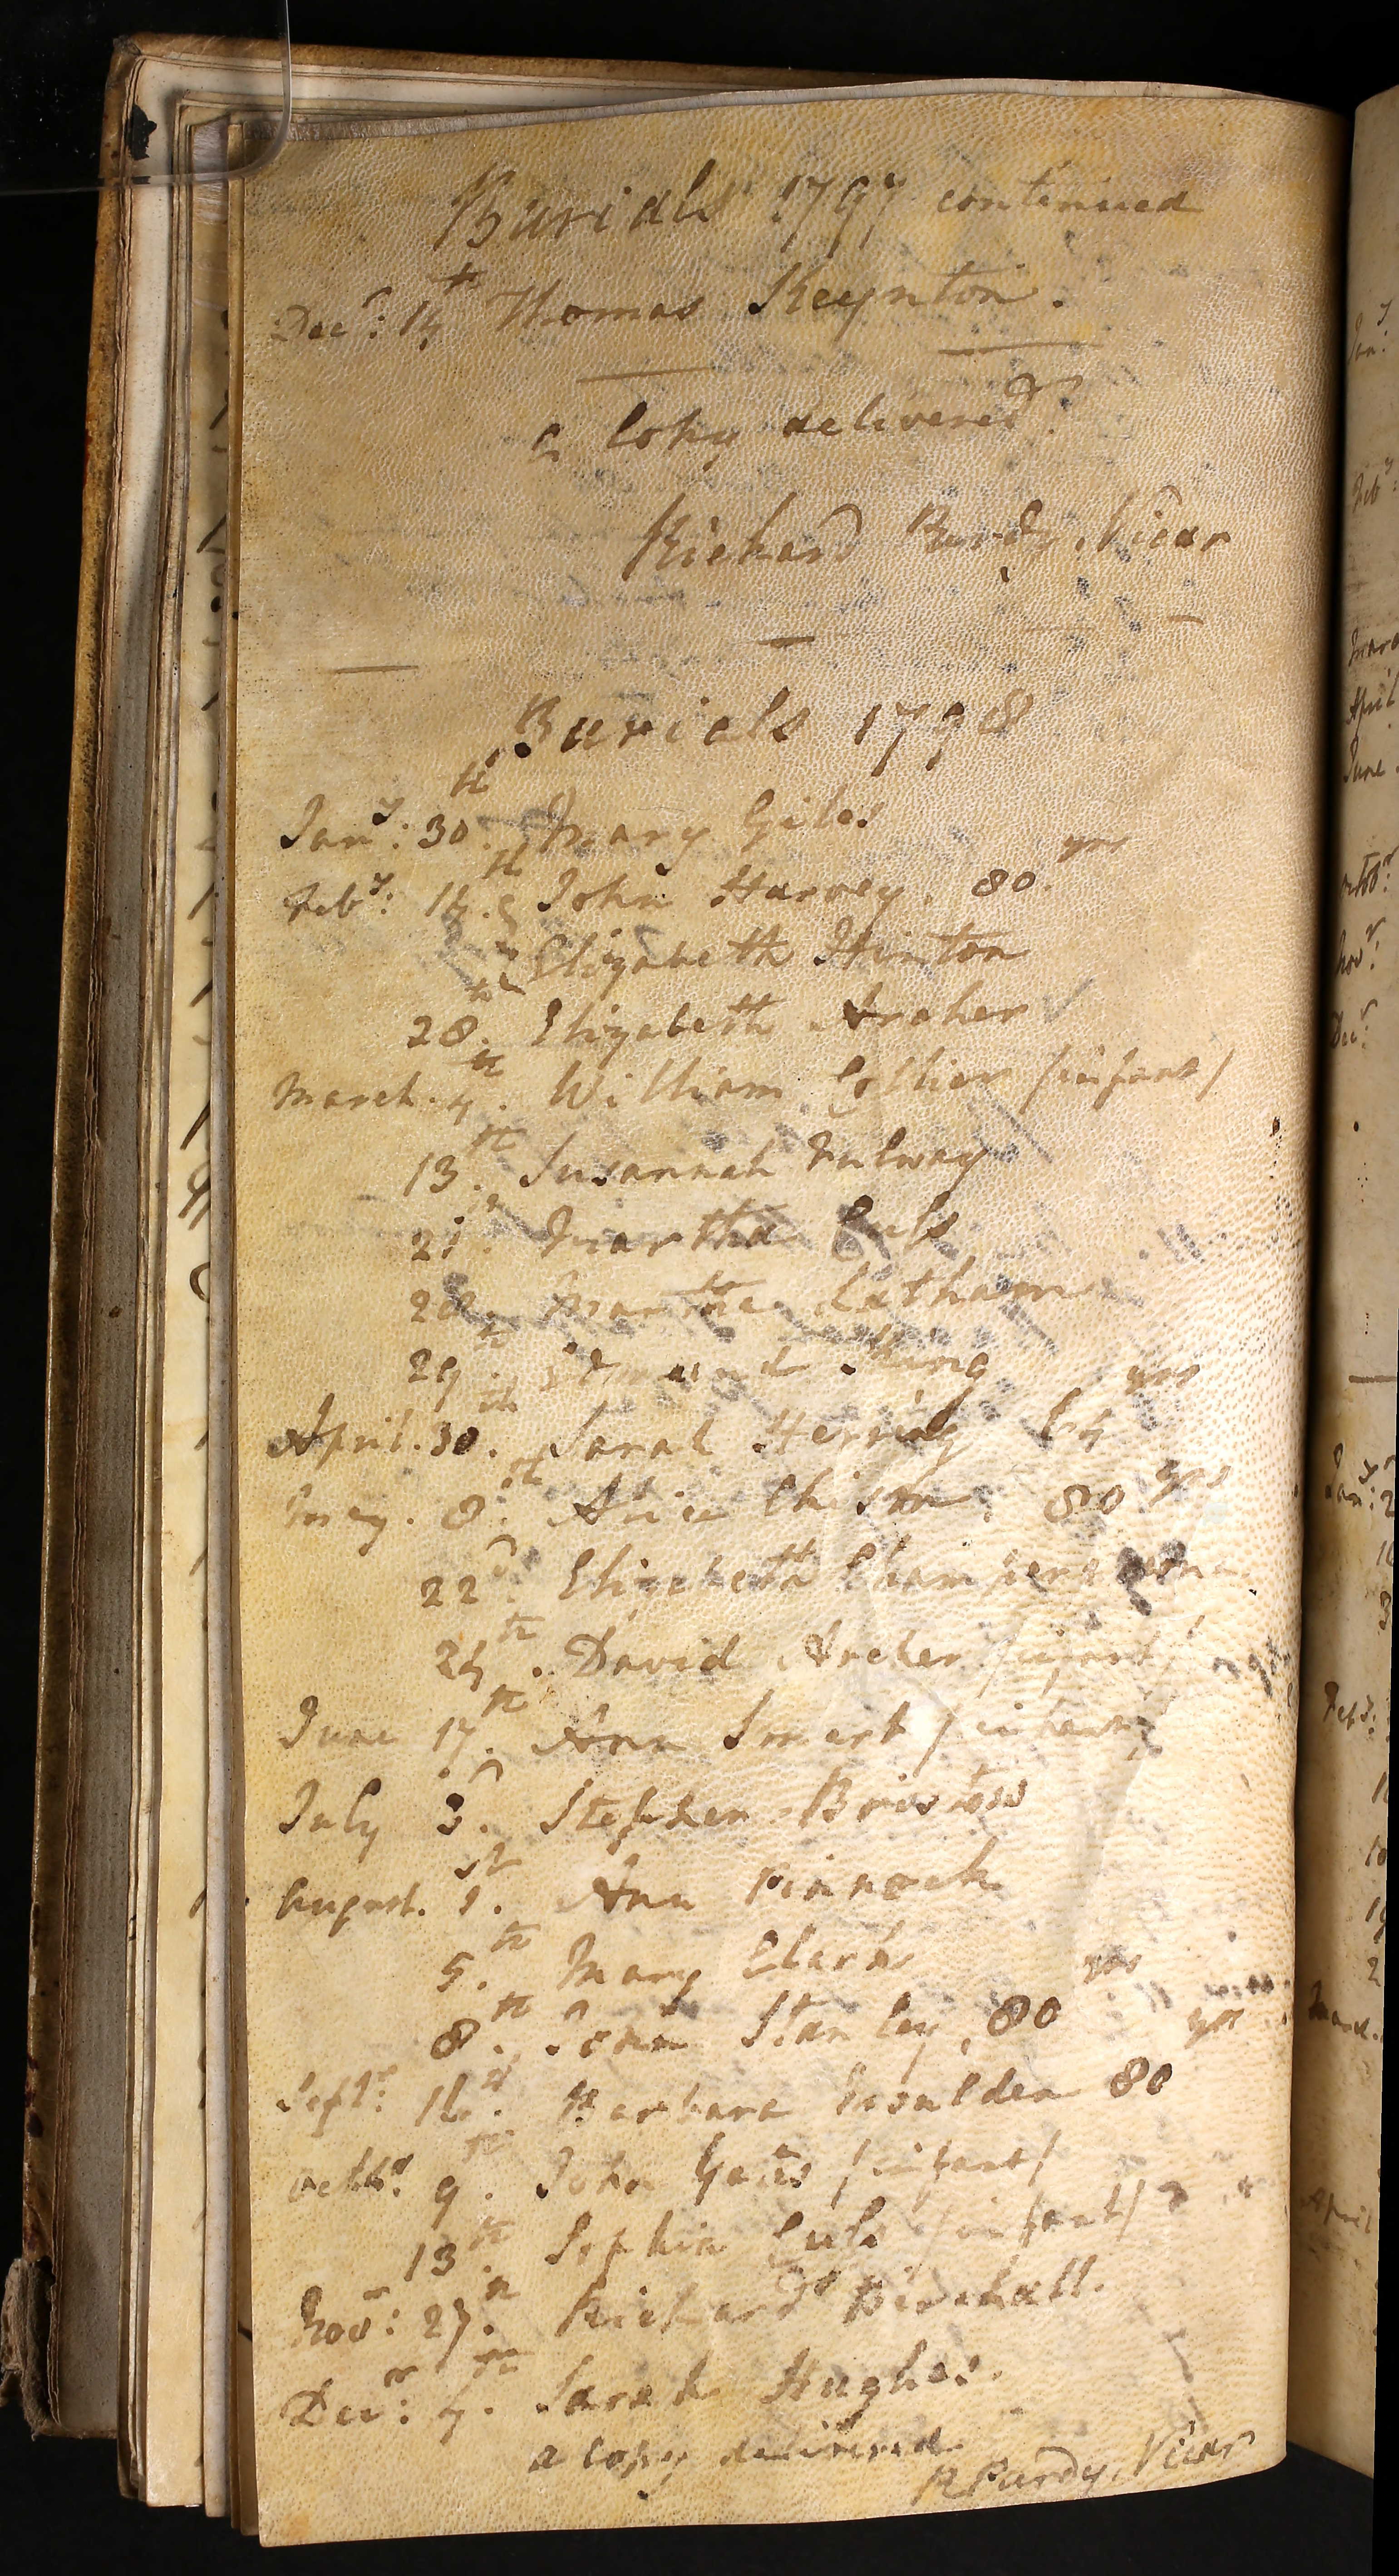 Burials 1797 continued
Decr: 14th Thomas Keynton.
a Copy delivered.
Richard Purdy, Vicar
Burials 1798
Jany: 30th. Mary Giles
Feby: 14th. John Harvey, 80. yrs
Elizabeth Hinton
28th. Elizabeth Archer
March. 4th. William Collier /infant/
13th. Susannah
21st. Martha Culs
28th. Martha Latham
29th. Edmund King
April. 30th. Sarah Herring 64 yrs
May. 8th. Alice Chism. 80 yrs
22d. Elizabeth
24th. David Archer /infant/
June 17th. Ann Smart /infant/
July 3d. Stephen Bristow
August. 1st. Ann Pinnock
5th. Mary Clark
8th. John Stanley, 80 yrs
Septr: 16th. Barbara Moulden 80 yrs
Octbr: 9th. John /infant/
13th. Sophia Culs /infant/
Novr: 27th. Richard Birchall.
Decr: 4th. Sarah Hughes.
a copy delivered
R Purdy, Vicar